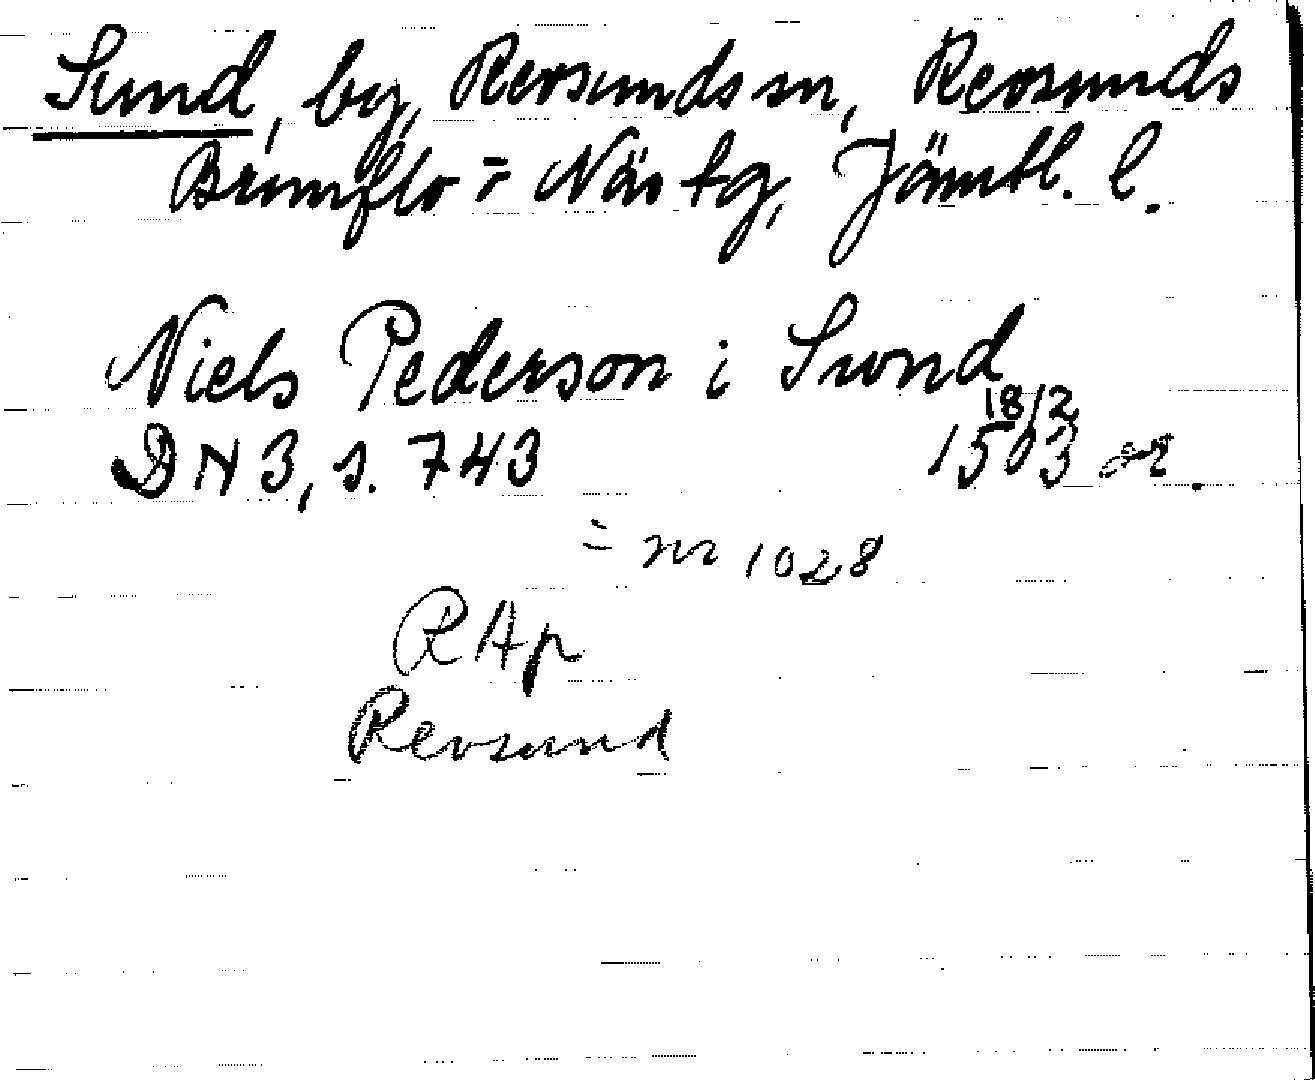 Sund, by, Revsunds sn, Revsunds
Brunflo = Näs tg, Jämtl. l.
Niels Pederson i Swnd
18/2
DN 3, s. 743 1503 or.
= nr 1028
RAp
Revsund